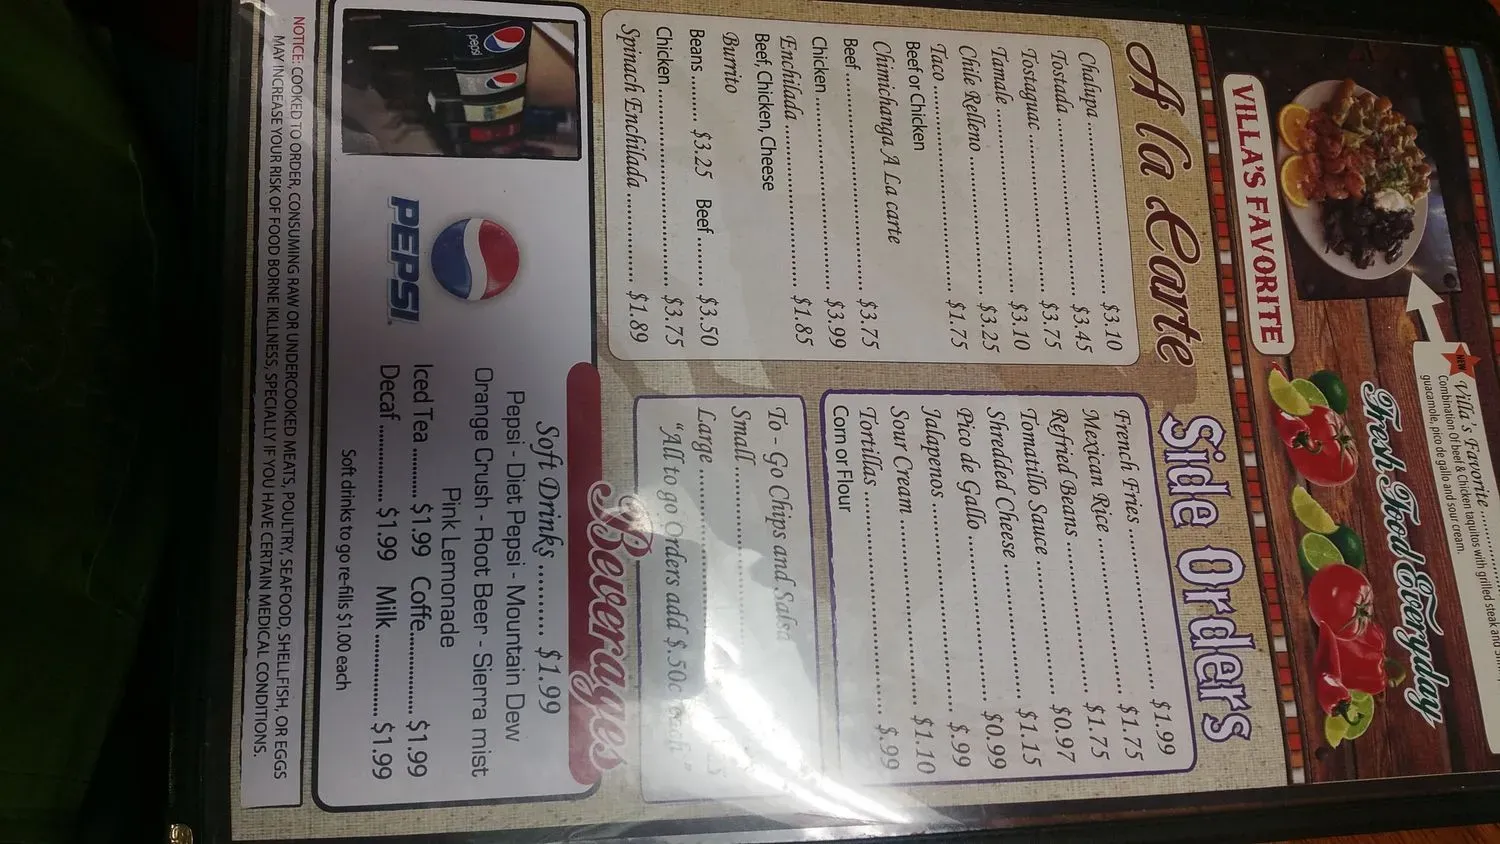 NEW
Villa's Favorite ..........
Combination Of beef & Chicken taquitos with grilled steak and
guacamole, pico de gallo and sour cream.
VILLA'S FAVORITE
Fresh Food Everyday
A la Carte
Chalupa .......... $3.10
Tostada .......... $3.45
Tostaguac .......... $3.75
Tamale .......... $3.10
Chile Relleno .......... $3.25
Taco .......... $1.75
Beef or Chicken
Chimichanga A La carte
Beef .......... $3.75
Chicken .......... $3.99
Enchilada .......... $1.85
Beef, Chicken, Cheese
Burrito
Beans ......... $3.25 Beef ......... $3.50
Chicken .......... $3.75
Spinach Enchilada .......... $1.89
Side Orders
French Fries .......... $1.99
Mexican Rice .......... $1.75
Refried Beans .......... $1.75
Tomatillo Sauce .......... $0.97
Shredded Cheese .......... $1.15
Pico de Gallo .......... $0.99
Jalapenos .......... $.99
Sour Cream .......... $1.10
Tortillas .......... $.99
Corn or Flour
To - Go Chips and Salsa
Small ..........
Large ..........
"All to go Orders add $.50c each"
Beverages
pepsi
PEPSI
Soft Drinks ......... $1.99
Pepsi - Diet Pepsi - Mountain Dew
Orange Crush - Root Beer - Sierra mist
Pink Lemonade
Iced Tea ......... $1.99 Coffe.......... $1.99
Decaf .......... $1.99 Milk .......... $1.99
Soft drinks to go re-fills $1.00 each
NOTICE: COOKED TO ORDER, CONSUMING RAW OR UNDERCOOKED MEATS, POULTRY, SEAFOOD, SHELLFISH, OR EGGS
MAY INCREASE YOUR RISK OF FOOD BORNE IKLLNESS, SPECIALLY IF YOU HAVE CERTAIN MEDICAL CONDITIONS.